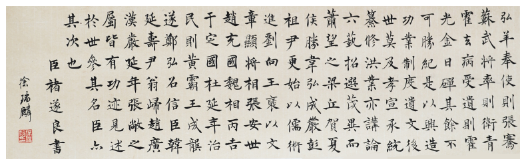 弘羊奉使則張騫
蘇武將率則衛青
霍去病受遺則霍
光金日磾其餘不
可勝紀是以興造
功業制度遺文後
世莫及孝宣承統
纂修洪業亦講論
六藝招選茂異而
蕭望之梁丘賀夏
侯勝韋弘成嚴彭
祖尹更始以儒術
進劉向王襃以文
章顯將相張安世
趙充國魏相丙吉
于定國杜延年治
民則黃霸王成龔
遂鄭弘召信臣韓
延壽尹翁歸趙廣
漢嚴延年張敞之
屬皆有功迹見述
於世參其名臣亦
其次也
臣褚遂良書
徐瑞麟